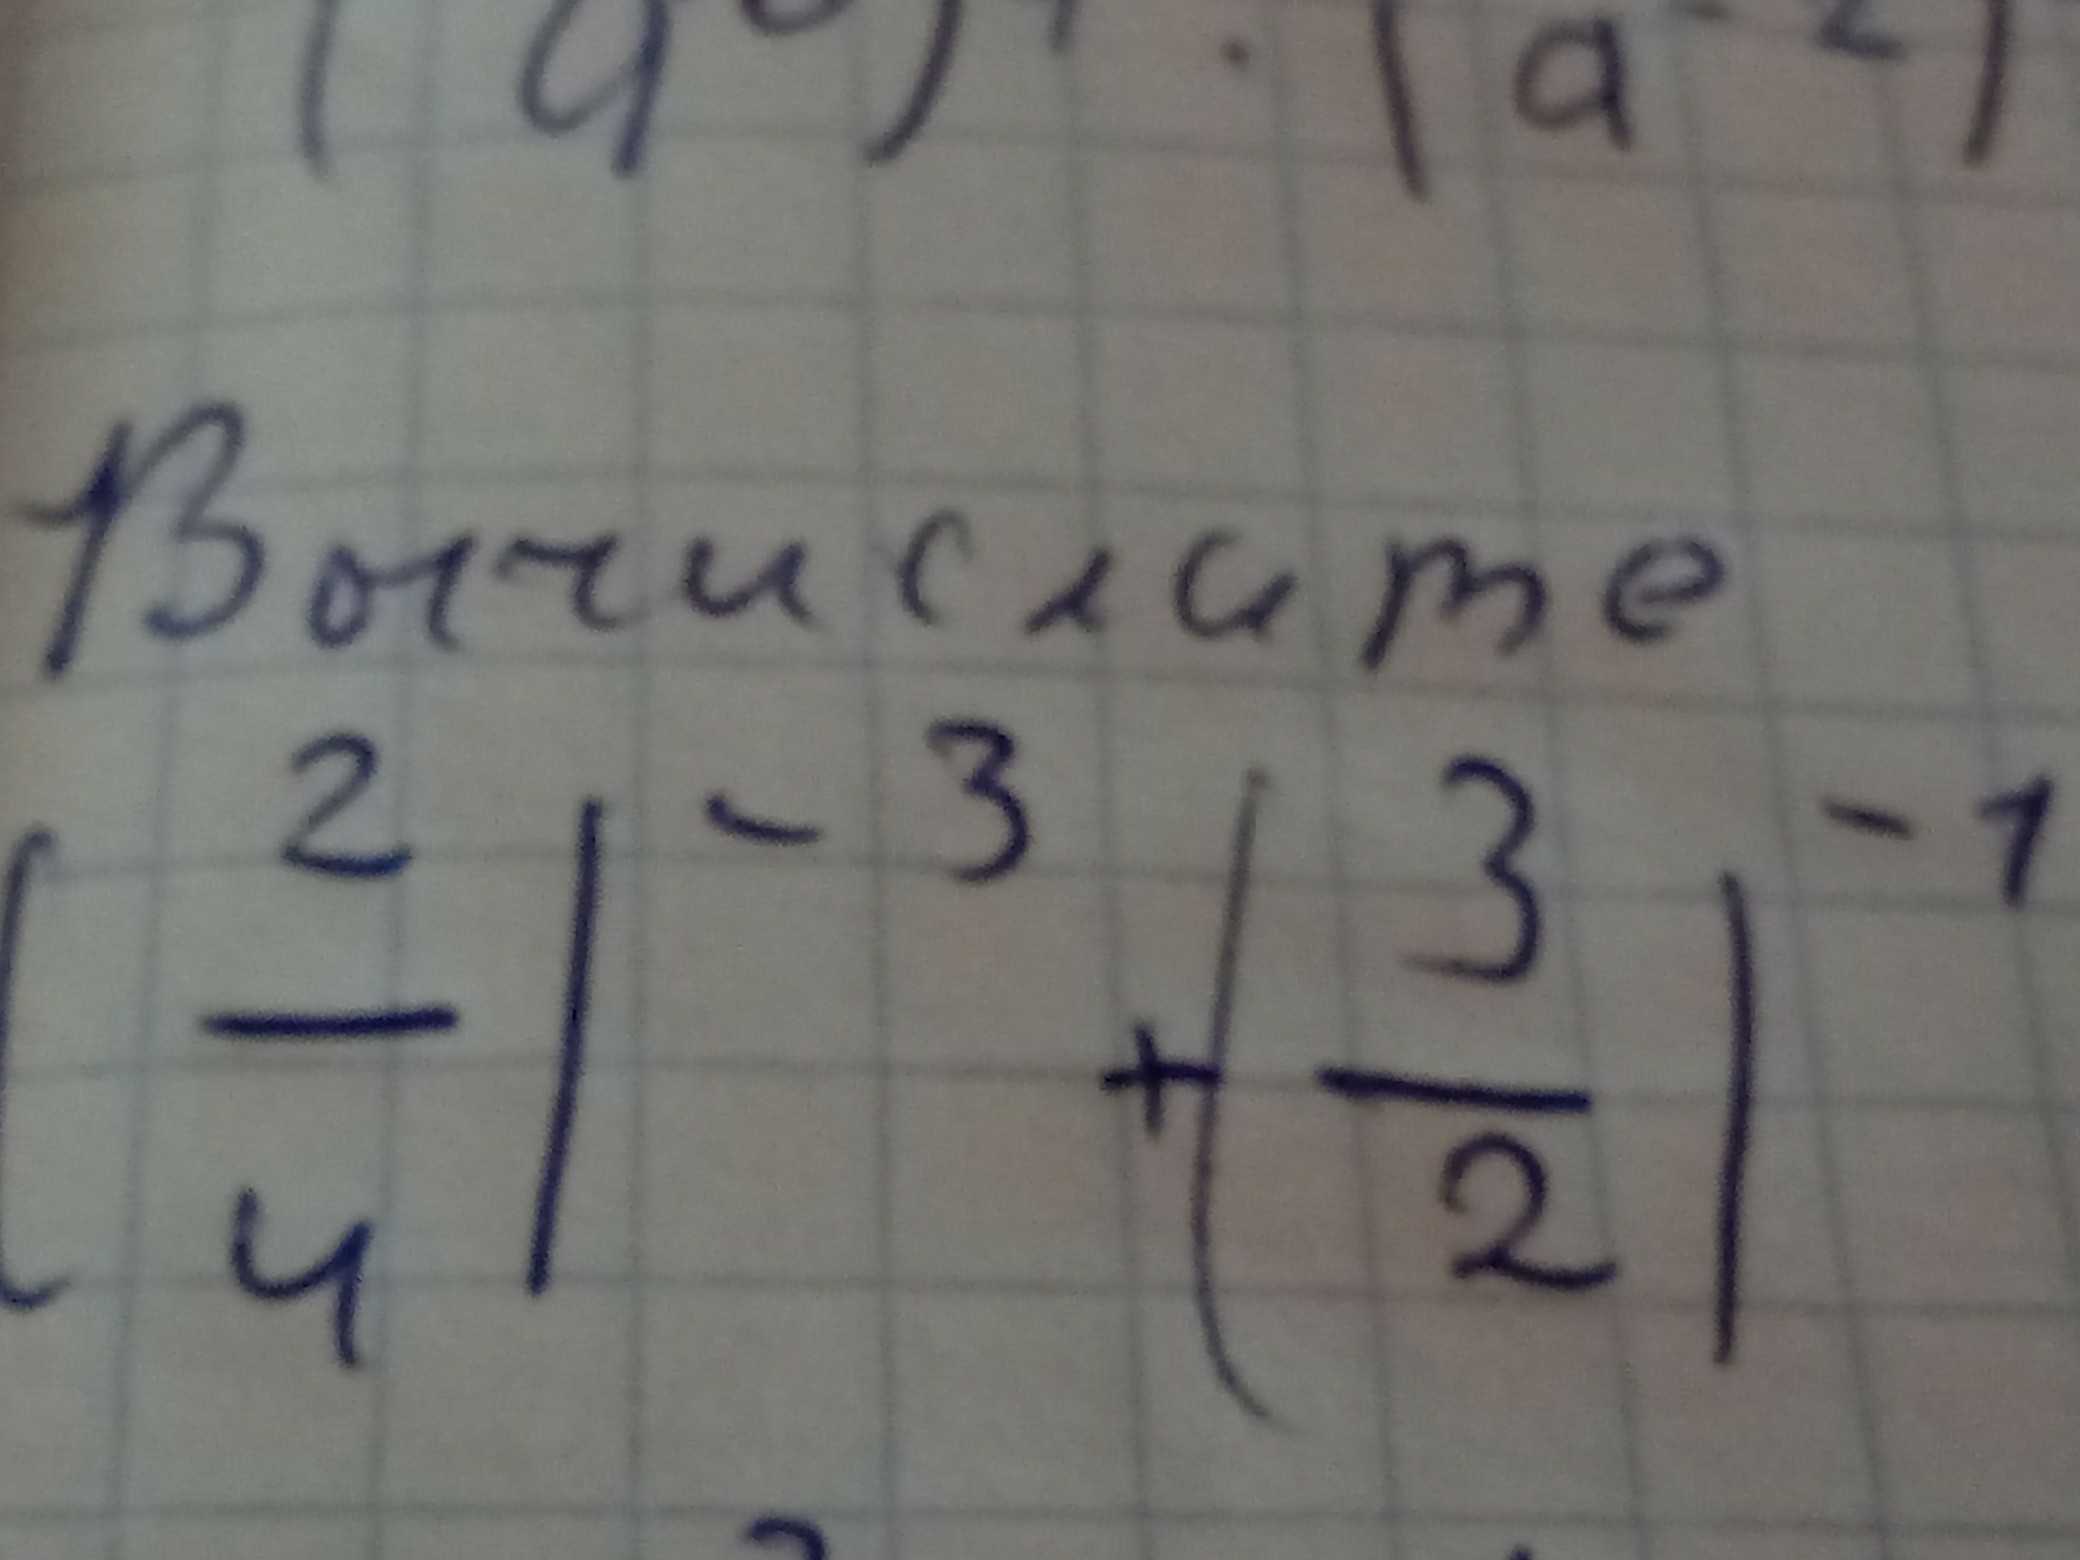 · (a⁻²)
Вычислите
(2/4)⁻³ + (3/2)⁻¹